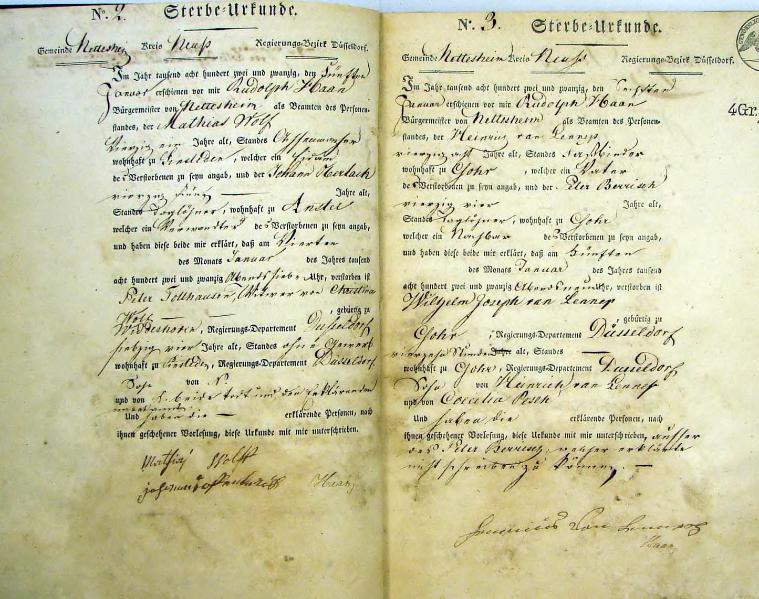 N°. 2. Sterbe-Urkunde.
Gemeinde Kreis Neuß Regierungs-Bezirk Düsseldorf.
Im Jahr tausend acht hundert zwei und zwanzig, den fünften
Januar erschienen vor mir Rudolph Haan
Bürgermeister von Nettesheim als Beamten des Personen-
standes, der Mathias Wolf
vierzig ein Jahre alt, Standes
wohnhaft zu , welcher ein
des Verstorbenen zu seyn angab, und der Johann
vierzig fünf — Jahre alt,
Standes Taglöhner, wohnhaft zu Anstel
welcher ein Verwandter des Verstorbenen zu seyn angab,
und haben diese beide mir erklärt, daß am Vierten
des Monats Januar des Jahres tausend
acht hundert zwei und zwanzig Abends sieben Uhr, verstorben ist
Peter Tollhausen, Witwer von Christina
Wolf , gebürtig zu
, Regierungs-Departement Düsseldorf
siebzig vier Jahre alt, Standes ohne Gewerb
wohnhaft zu , Regierungs-Departement Düsseldorf
Sohn von
und von
Und haben die — erklärende Personen, nach
ihnen geschehener Vorlesung, diese Urkunde mit mir unterschrieben.
Mathias Wolff
Haan
N°. 3. Sterbe-Urkunde.
Gemeinde Nettesheim Kreis Neuß Regierungs-Bezirk Düsseldorf.
4Gr.
Im Jahr tausend acht hundert zwei und zwanzig, den Sechsten
Januar erschienen vor mir Rudolph Haan
Bürgermeister von Nettesheim als Beamten des Personen-
standes, der Heinrich van Lennep
vierzig acht Jahre alt, Standes Faßbinder
wohnhaft zu Gohr , welcher ein Vater
des Verstorbenen zu seyn angab, und der Peter Berrisch
vierzig vier Jahre alt,
Standes Taglöhner, wohnhaft zu Gohr
welcher ein Nachbar des Verstorbenen zu seyn angab,
und haben diese beide mir erklärt, daß am fünften
des Monats Januar des Jahres tausend
acht hundert zwei und zwanzig Abends neun Uhr, verstorben ist
Wilhelm Joseph van Lennep
, gebürtig zu
Gohr , Regierungs-Departement Düsseldorf
vierzehn Stunden Jahre alt, Standes —
wohnhaft zu Gohr, Regierungs-Departement Düsseldorf
Sohn von Heinrich van Lennep
und von Coecilia Pesch
Und haben die erklärende Personen, nach
ihnen geschehener Vorlesung, diese Urkunde mit mir unterschrieben, außer
der Peter Berrisch, welcher erklärte
nicht schreiben zu können. —
Henricus van Lennep
Haan